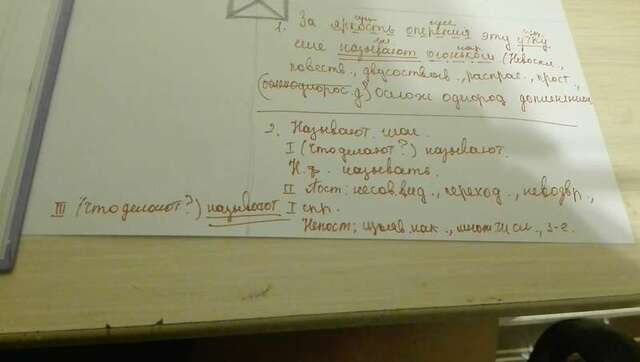 1. За яркость оперения эту утку
еще называют огоньком (Невоскл.,
повеств., двусоставн., распрос., прост.,
осложн однород дополнением
2. Называют глаг.
I (что делают?) называют.
Н.ф. называть.
II Пост: несов.вид., переход., невозвр.,
I спр.
Непост; изъяв.нак., множ.
III (что делают?) называют